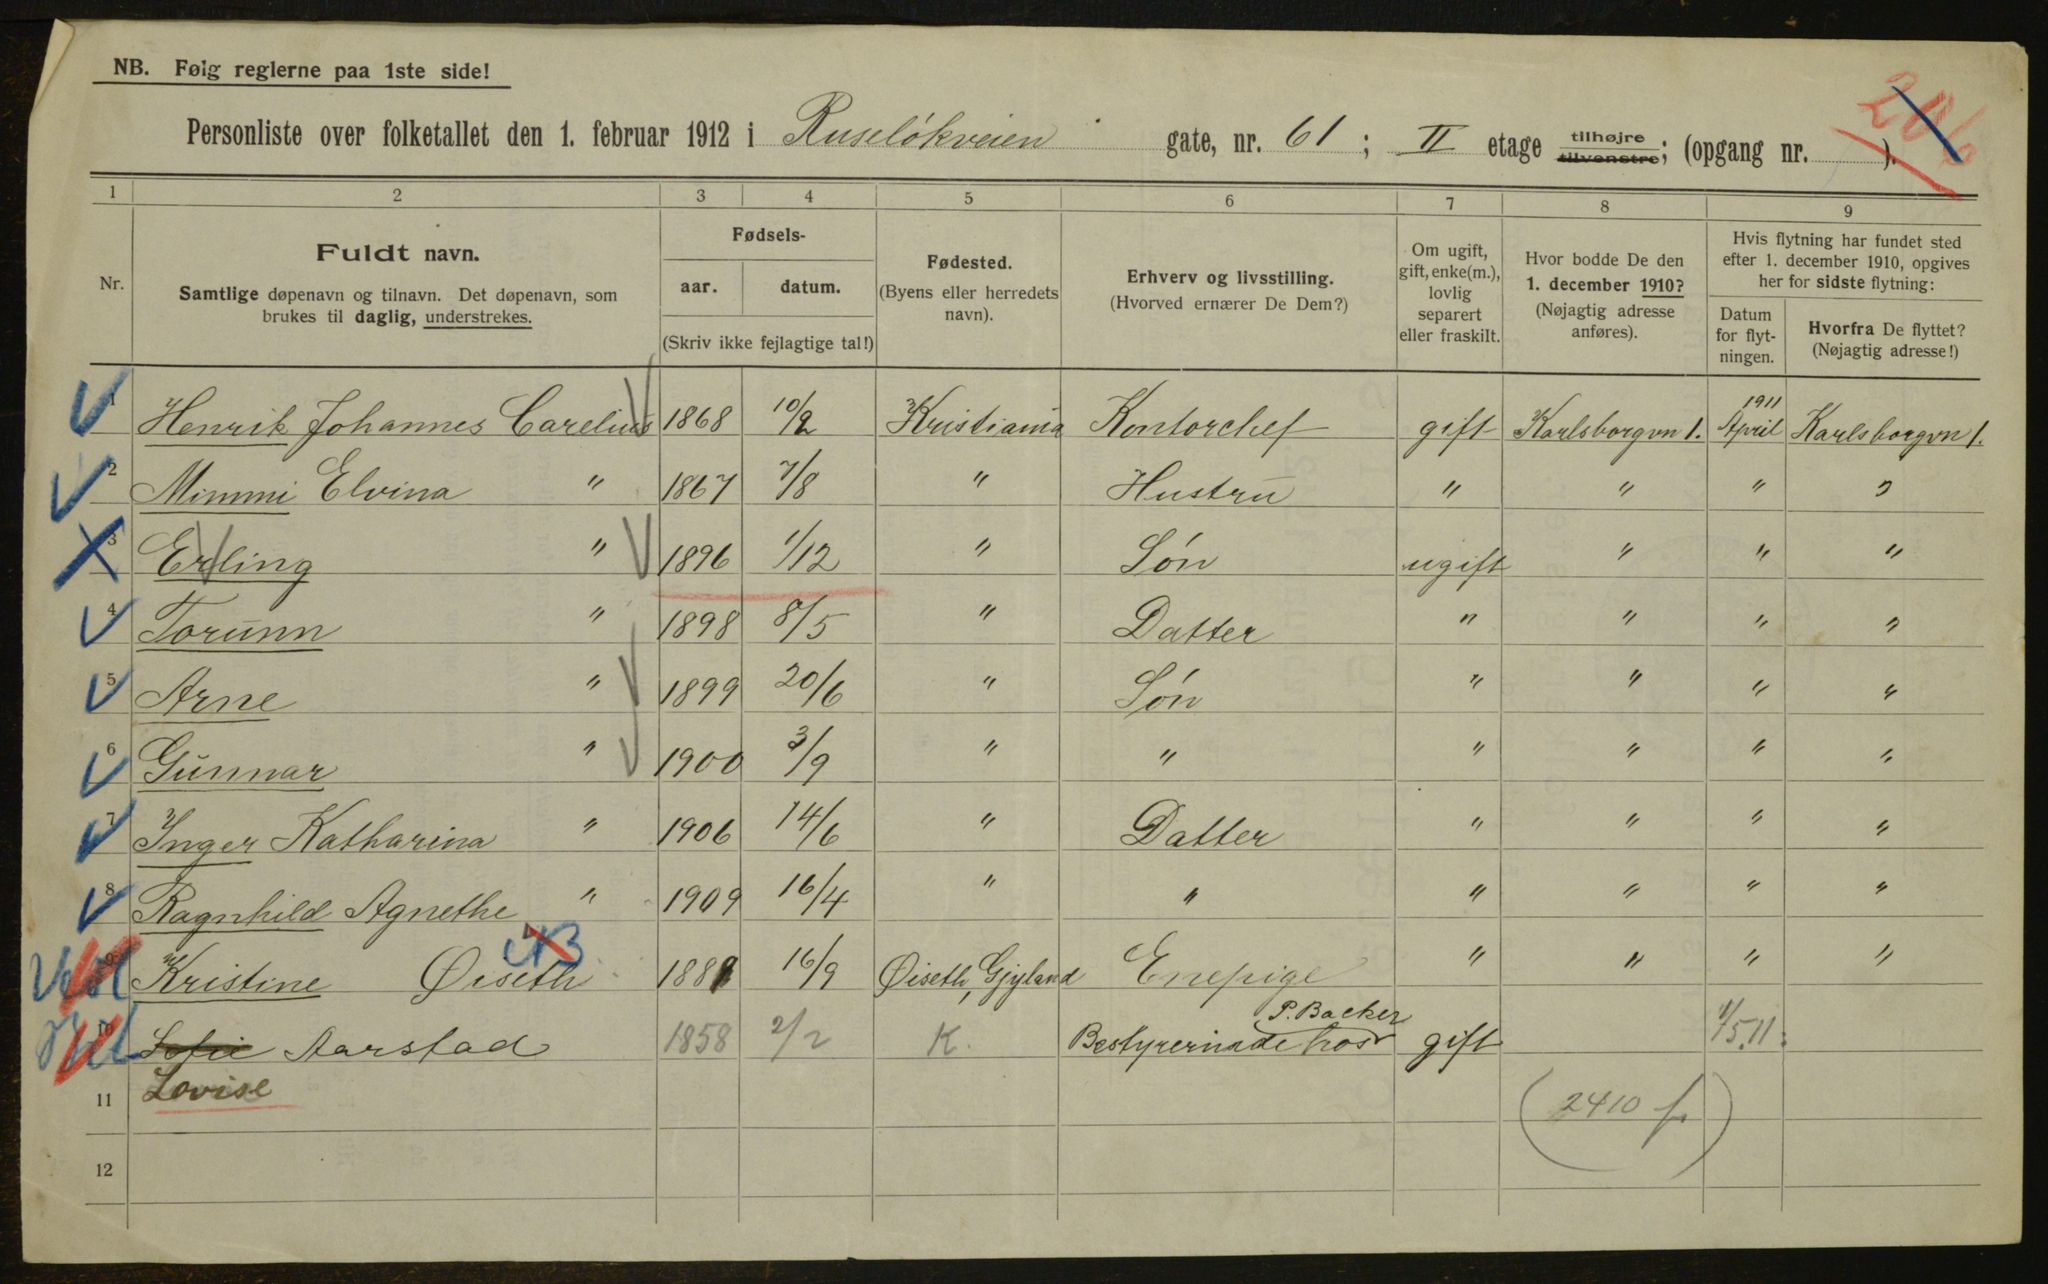 NB. Følg reglerne paa 1ste side!
Personliste over folketallet den 1. februar 1912 i Ruseløkveien gate, nr. 61; II etage tilhøjre tilvenstre; (opgang nr. ).
1 2 3 4 5 6 7 8 9
Nr.
Fuldt navn.
Samtlige døpenavn og tilnavn. Det døpenavn, som
brukes til daglig, understrekes.
Fødsels-
aar. datum.
(Skriv ikke fejlagtige tal!)
Fødested.
(Byens eller herredets
navn).
Erhverv og livsstilling.
(Hvorved ernærer De Dem?)
Om ugift,
gift, enke(m.),
lovlig
separert
eller fraskilt.
Hvor bodde De den
1. december 1910?
(Nøjagtig adresse
anføres).
Hvis flytning har fundet sted
efter 1. december 1910, opgives
her for sidste flytning:
Datum
for flyt-
ningen.
Hvorfra De flyttet?
(Nøjagtig adresse!)
1 Henrik Johannes Carelius 1868 10/2 Kristiania Kontorchef gift Karlsborgvn 1. 1911 April Karlsborgvn 1.
2 Mimmi Elvina " 1867 7/8 " Hustru " " " "
3 Erling " 1896 1/12 " Søn ugift " " "
4 Torunn " 1898 8/5 " Datter " " " "
5 Arne " 1899 20/6 " Søn " " " "
6 Gunnar " 1900 3/9 " " " " " "
7 Inger Katharina " 1906 14/6 " Datter " " " "
8 Ragnhild Agnethe " 1909 16/4 " " " " " "
9 Kristine Øiseth 1889 16/9 Øiseth, Gjyland Enepige " " " "
P. Backer
10 Sofie Aarstad 1858 2/2 K. Bestyrerinde hos gift 1/5.11.
11 Lovise
(2410 f.)
12